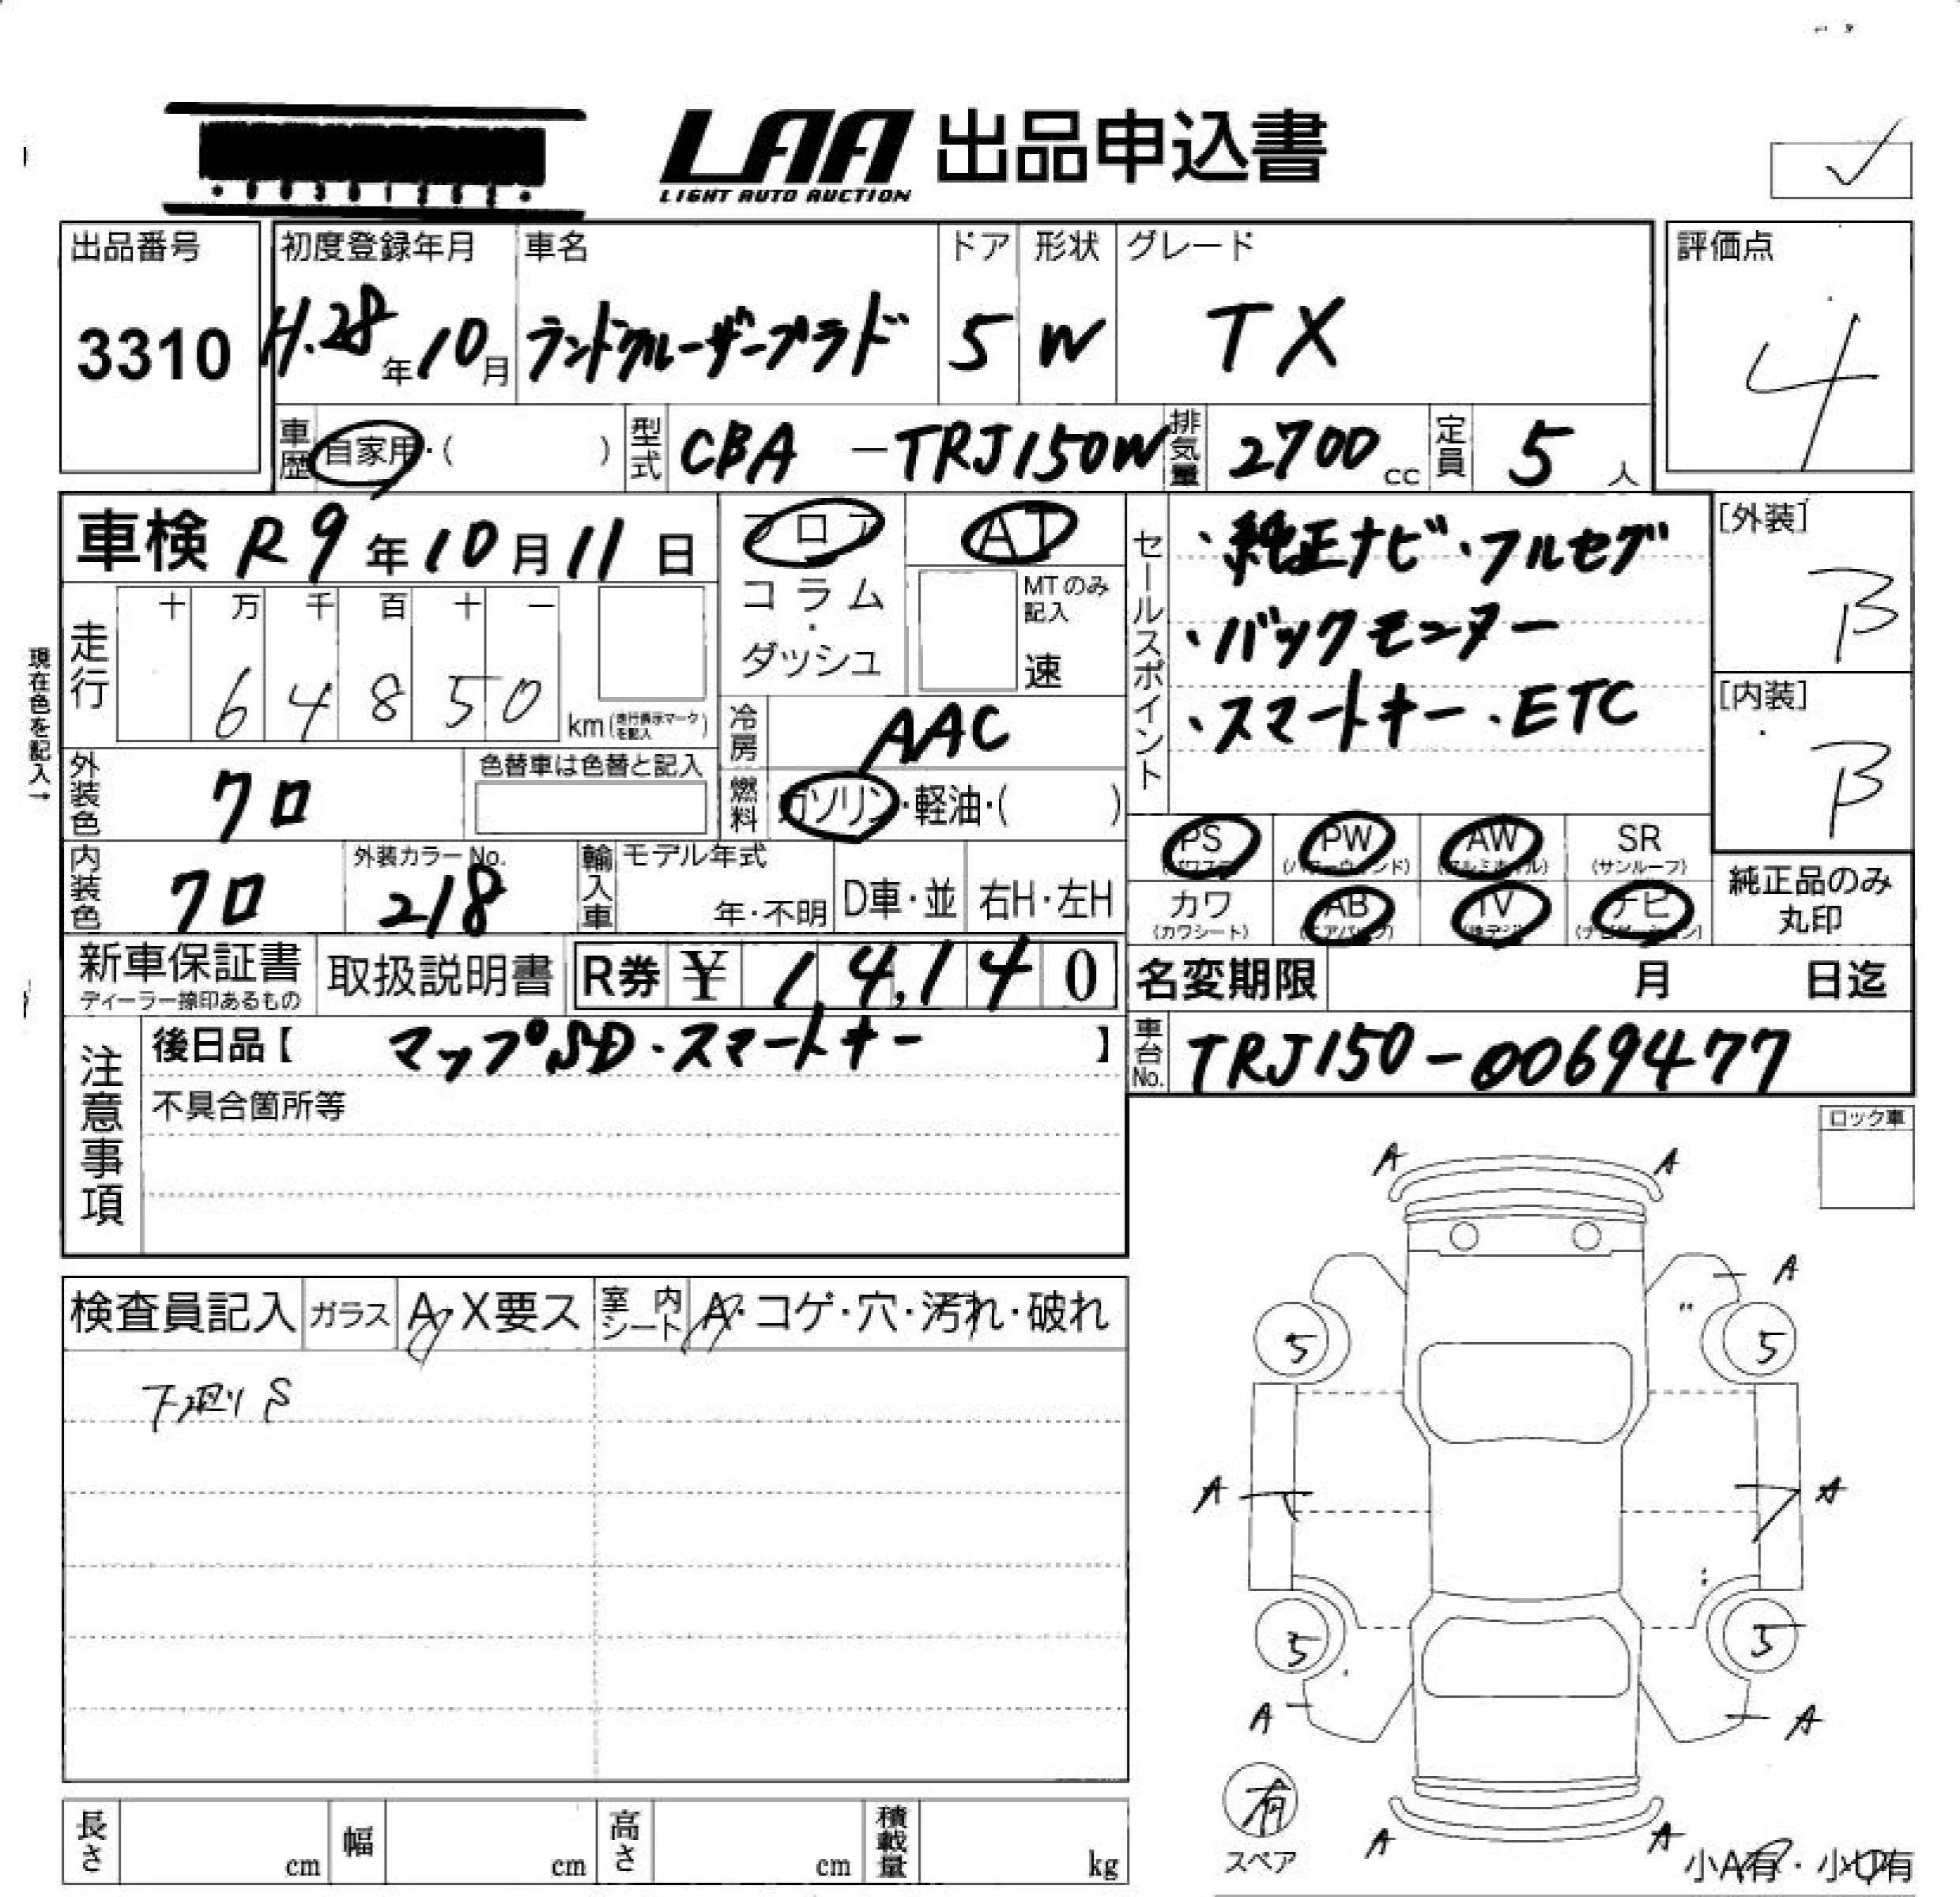 LAA 出品申込書
LIGHT AUTO AUCTION
出品番号
3310
初度登録年月
H.28年10月
車名
ランドクルーザープラド
ドア
5
形状
W
グレード
TX
評価点
4
車歴 自家用・( )
型式 CBA -TRJ150W
排気量 2700 cc
定員 5 人
車検 R9年10月11日
フロア
コラム
・
ダッシュ
AT
MTのみ記入
速
セールスポイント
・純正ナビ・フルセグ
・バックモニター
・スマートキー・ETC
[外装]
B
[内装]
B
現在色を記入→
走行
十 万 千 百 十 一
6 4 8 5 0
km(走行表示マークを記入)
冷房 AAC
燃料 ガソリン・軽油・( )
外装色 クロ
色替車は色替と記入
内装色 クロ
外装カラーNo.
218
輸入車
モデル年式
年・不明
D車・並
右H・左H
PS (パワステ)
PW (パワーウィンド)
AW (アルミホイル)
SR (サンルーフ)
カワ (カワシート)
AB (エアバッグ)
TV (地デジ)
ナビ (ナビゲーション)
純正品のみ
丸印
新車保証書
ディーラー捺印あるもの
取扱説明書
R券 ¥ 14,140
名変期限 月 日迄
車台No. TRJ150-0069477
注意事項
後日品【 マップSD・スマートキー 】
不具合箇所等
ロック車
検査員記入
ガラス A・X要ス
室内シート A・コゲ・穴・汚れ・破れ
下廻り S
A A
A
5 5
A A
5 5
A A
有
スペア
A A
小A有・小U有
長さ cm
幅 cm
高さ cm
積載量 kg